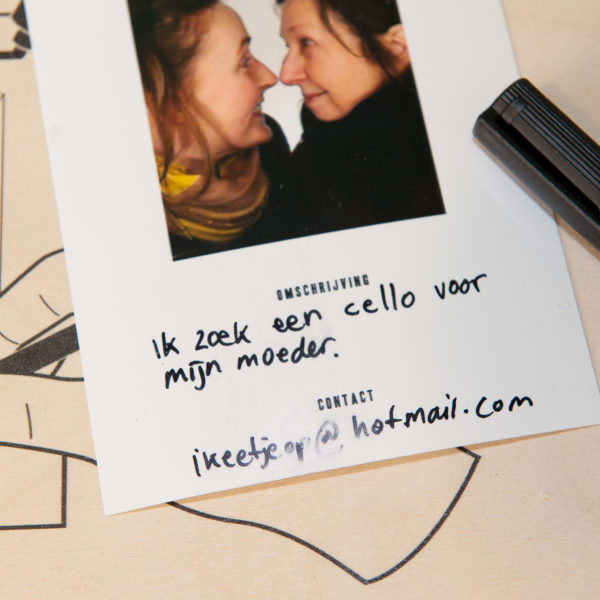 OMSCHRIJVING
Ik zoek een cello voor
mijn moeder.
CONTACT
ikeetjeop@hotmail.com